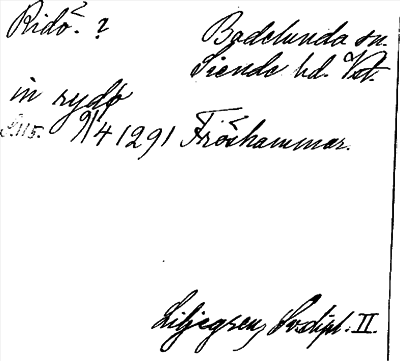 Ridö. ?
Badelunda sn.
Siende hd. Vstm.
in rydø
S. 115. 9/4 1291 Fröshammar.
Liljegren, Sv. dipl. II.